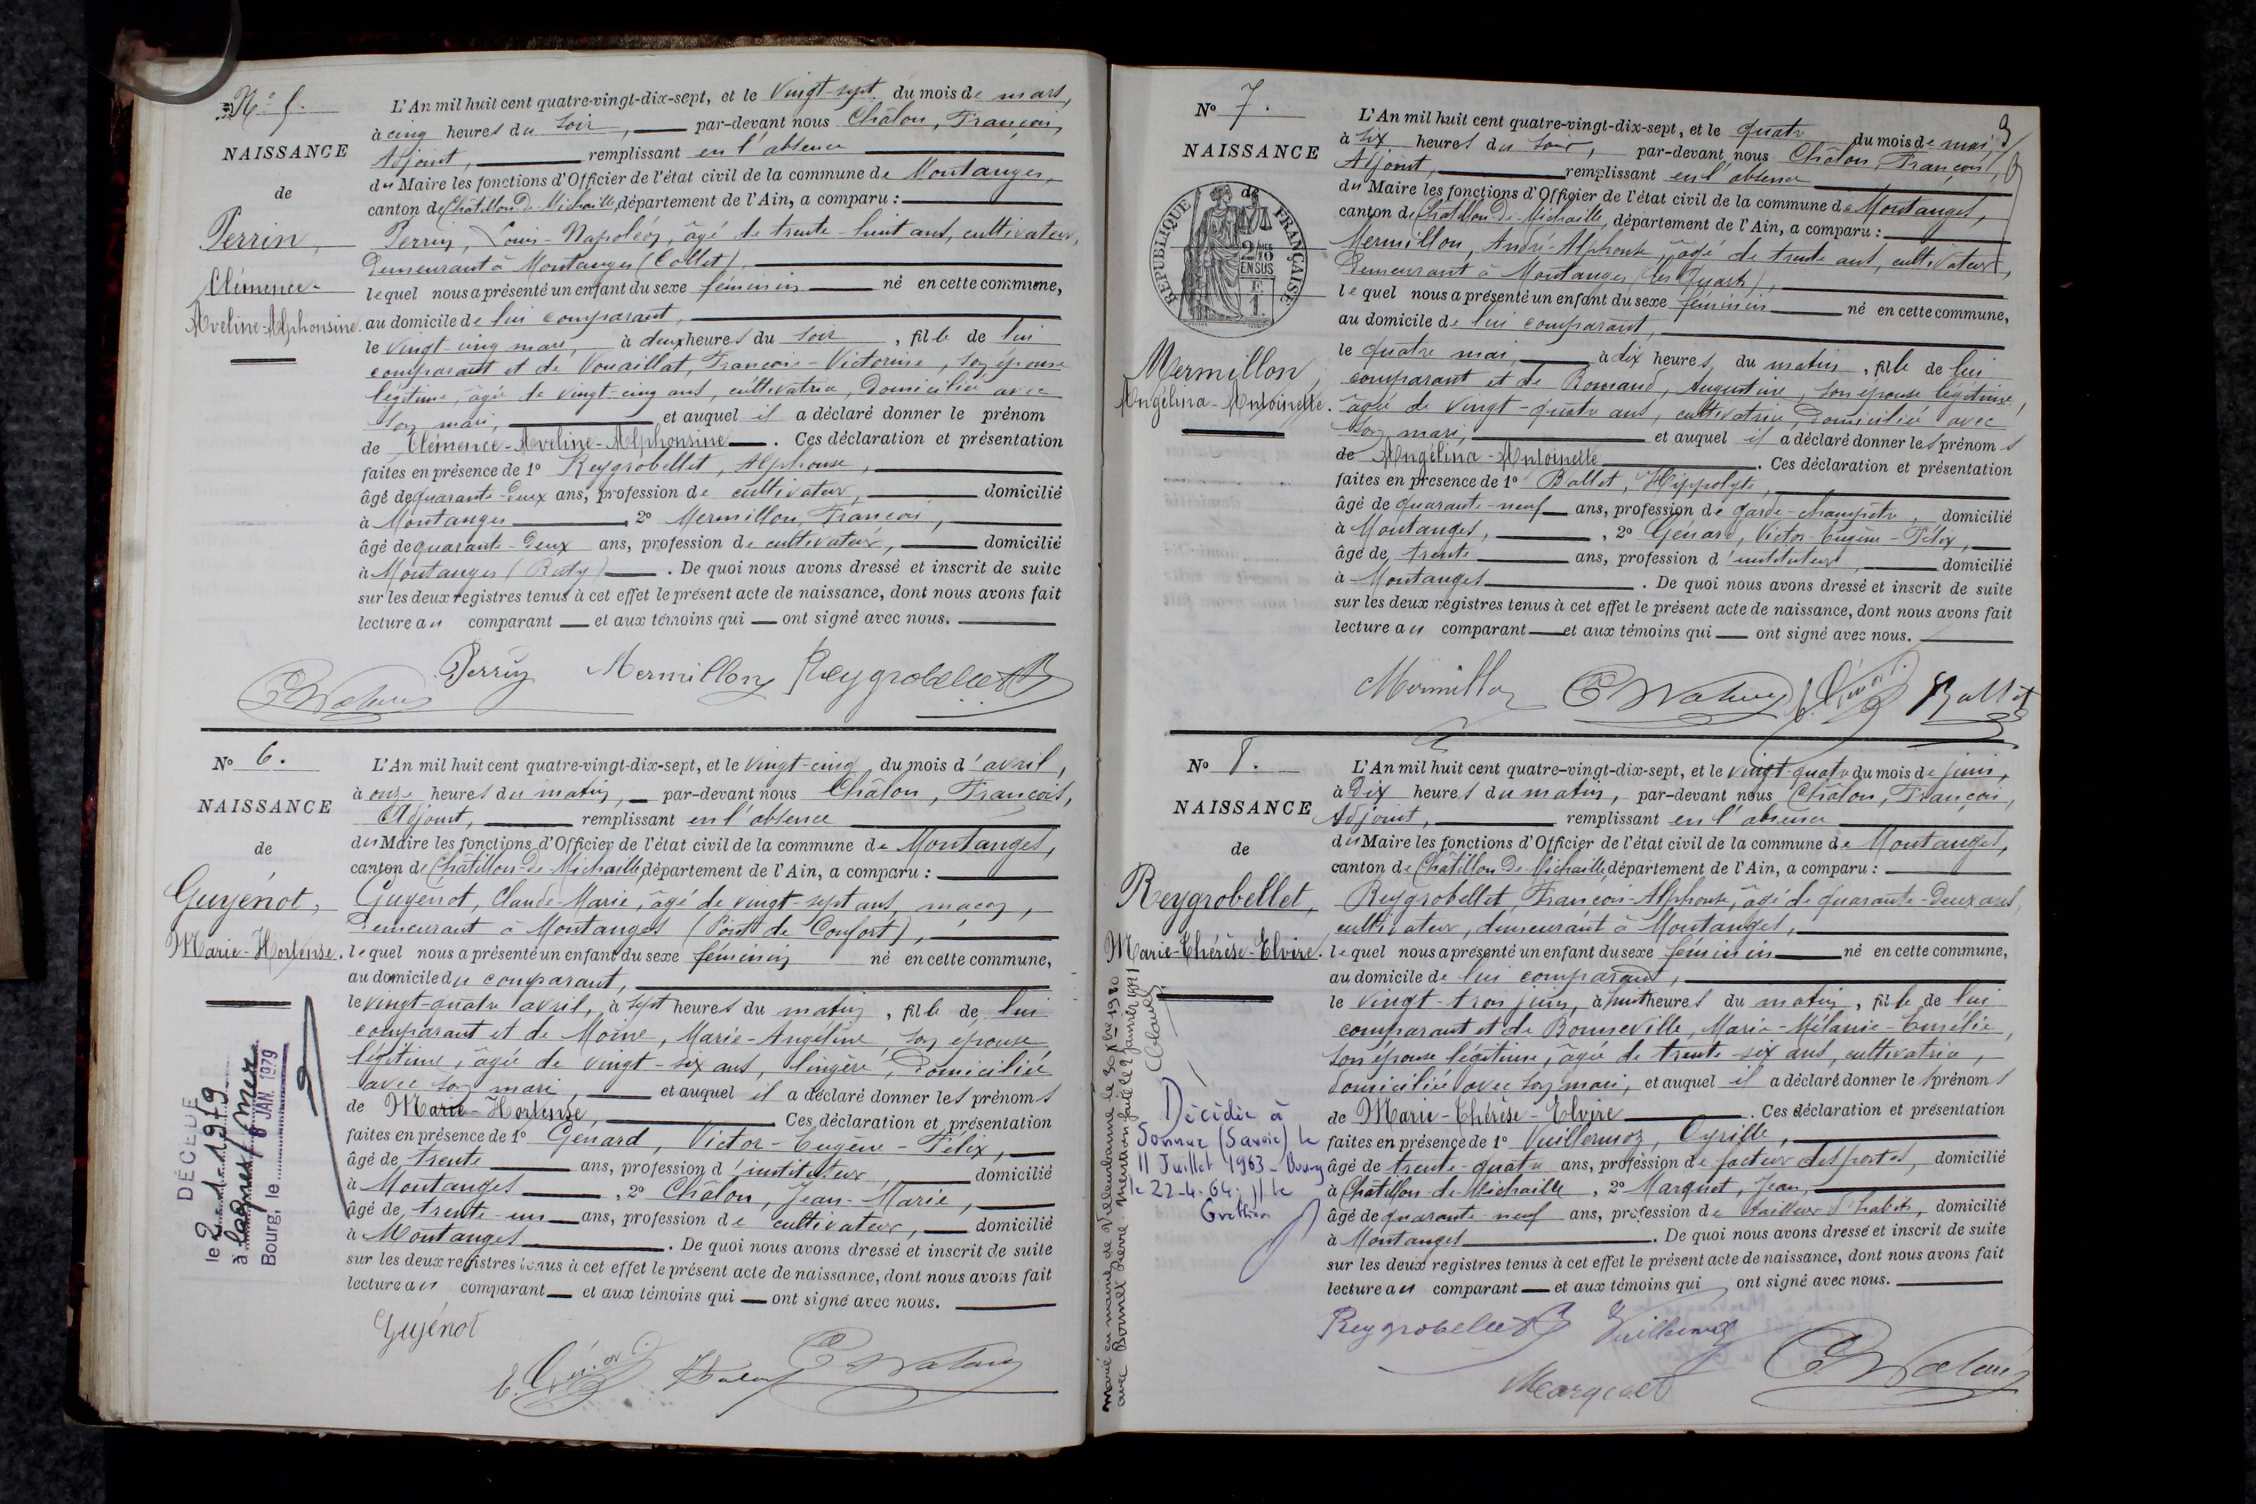 N° 5.
NAISSANCE
de
Perrin,
Clémence-
Aveline-Alphonsine.
L'An mil huit cent quatre-vingt-dix-sept, et le vingt-sept du mois de mars,
à cinq heures du soir, par-devant nous Châlon, François,
Adjoint, remplissant en l'absence
du Maire les fonctions d'Officier de l'état civil de la commune de Montanges,
canton de Châtillon-de-Michaille, département de l'Ain, a comparu :
Perrin, Louis-Napoléon, âgé de trente-huit ans, cultivateur,
demeurant à Montanges (Collet),
lequel nous a présenté un enfant du sexe féminin né en cette commune,
au domicile de lui comparant,
le vingt-cinq mars, à deux heures du soir, fille de lui
comparant et de Vouaillat, François-Victorine, son épouse
légitime, âgée de vingt-cinq ans, cultivatrice, domiciliée avec
son mari, et auquel il a déclaré donner le prénom
de Clémence-Aveline-Alphonsine. Ces déclaration et présentation
faites en présence de 1° Reygrobellet, Alphonse,
âgé de quarante-deux ans, profession de cultivateur, domicilié
à Montanges, 2° Mermillon, François,
âgé de quarante-deux ans, profession de cultivateur, domicilié
à Montanges. De quoi nous avons dressé et inscrit de suite
sur les deux registres tenus à cet effet le présent acte de naissance, dont nous avons fait
lecture au comparant et aux témoins qui ont signé avec nous.
Perrin Mermillon Reygrobellet
N° 6.
NAISSANCE
de
Guyénot,
Marie-Hortense.
L'An mil huit cent quatre-vingt-dix-sept, et le vingt-cinq du mois d'avril,
à onze heures du matin, par-devant nous Châlon, François,
Adjoint, remplissant en l'absence
du Maire les fonctions d'Officier de l'état civil de la commune de Montanges,
canton de Châtillon-de-Michaille, département de l'Ain, a comparu :
Guyénot, Claude-Marie, âgé de vingt-sept ans, maçon,
demeurant à Montanges (Pont de Confort),
lequel nous a présenté un enfant du sexe féminin né en cette commune,
au domicile du comparant,
le vingt-quatre avril, à sept heures du matin, fille de lui
comparant et de Moine, Marie-Angéline, son épouse
légitime, âgée de vingt-six ans, lingère, domiciliée
avec son mari, et auquel il a déclaré donner les prénoms
de Marie-Hortense, Ces déclaration et présentation
faites en présence de 1° Génard, Victor-Eugène-Félix,
âgé de trente ans, profession d'instituteur, domicilié
à Montanges, 2° Châlon, Jean-Marie,
âgé de trente-un ans, profession de cultivateur, domicilié
à Montanges. De quoi nous avons dressé et inscrit de suite
sur les deux registres tenus à cet effet le présent acte de naissance, dont nous avons fait
lecture au comparant et aux témoins qui ont signé avec nous.
Guyénot
DÉCÉDÉ
le 2-1-1979
à
Bourg, le 8 JAN. 1979
3
N° 7.
NAISSANCE
de
RÉPUBLIQUE FRANÇAISE
2 DMES 10
EN SUS
Mermillon,
Angélina-Antoinette.
L'An mil huit cent quatre-vingt-dix-sept, et le quatre du mois de mai,
à six heures du soir, par-devant nous Châlon, François,
Adjoint, remplissant en l'absence
du Maire les fonctions d'Officier de l'état civil de la commune de Montanges,
canton de Châtillon-de-Michaille, département de l'Ain, a comparu :
Mermillon, André-Alphonse, âgé de trente ans, cultivateur,
demeurant à Montanges
lequel nous a présenté un enfant du sexe féminin né en cette commune,
au domicile de lui comparant,
le quatre mai, à dix heures du matin, fille de lui
comparant et de Romand, Augustine, son épouse légitime,
âgée de vingt-quatre ans, cultivatrice, domiciliée avec
son mari, et auquel il a déclaré donner les prénoms
de Angélina-Antoinette. Ces déclaration et présentation
faites en présence de 1° Ballet, Hippolyte,
âgé de quarante-neuf ans, profession de garde-champêtre, domicilié
à Montanges, 2° Génard, Victor-Eugène-Félix,
âgé de trente ans, profession d'instituteur, domicilié
à Montanges. De quoi nous avons dressé et inscrit de suite
sur les deux registres tenus à cet effet le présent acte de naissance, dont nous avons fait
lecture au comparant et aux témoins qui ont signé avec nous.
Mermillon Ballet
N° 8.
NAISSANCE
de
Reygrobellet,
Marie-Thérèse-Elvire.
L'An mil huit cent quatre-vingt-dix-sept, et le vingt-quatre du mois de juin,
à dix heures du matin, par-devant nous Châlon, François,
Adjoint, remplissant en l'absence
du Maire les fonctions d'Officier de l'état civil de la commune de Montanges,
canton de Châtillon-de-Michaille, département de l'Ain, a comparu :
Reygrobellet, François-Alphonse, âgé de quarante-deux ans,
cultivateur, demeurant à Montanges,
lequel nous a présenté un enfant du sexe féminin né en cette commune,
au domicile de lui comparant,
le vingt-trois juin, à huit heures du matin, fille de lui
comparant et de Bonneville, Marie-Mélanie-Emélie,
son épouse légitime, âgée de trente-six ans, cultivatrice,
domiciliée avec son mari, et auquel il a déclaré donner les prénoms
de Marie-Thérèse-Elvire. Ces déclaration et présentation
faites en présence de 1° Vuillermoz, Cyrille,
âgé de trente-quatre ans, profession de facteur des postes, domicilié
à Châtillon-de-Michaille, 2° Marquet, Jean,
âgé de quarante-neuf ans, profession de tailleur d'habits, domicilié
à Montanges. De quoi nous avons dressé et inscrit de suite
sur les deux registres tenus à cet effet le présent acte de naissance, dont nous avons fait
lecture au comparant et aux témoins qui ont signé avec nous.
Reygrobellet Vuillermoz
Marquet
Marié en mairie de Villeurbanne le
avec
Décédée à
(Savoie) le
11 Juillet 1963 - Bourg
le 22-4-64. Le
Greffier